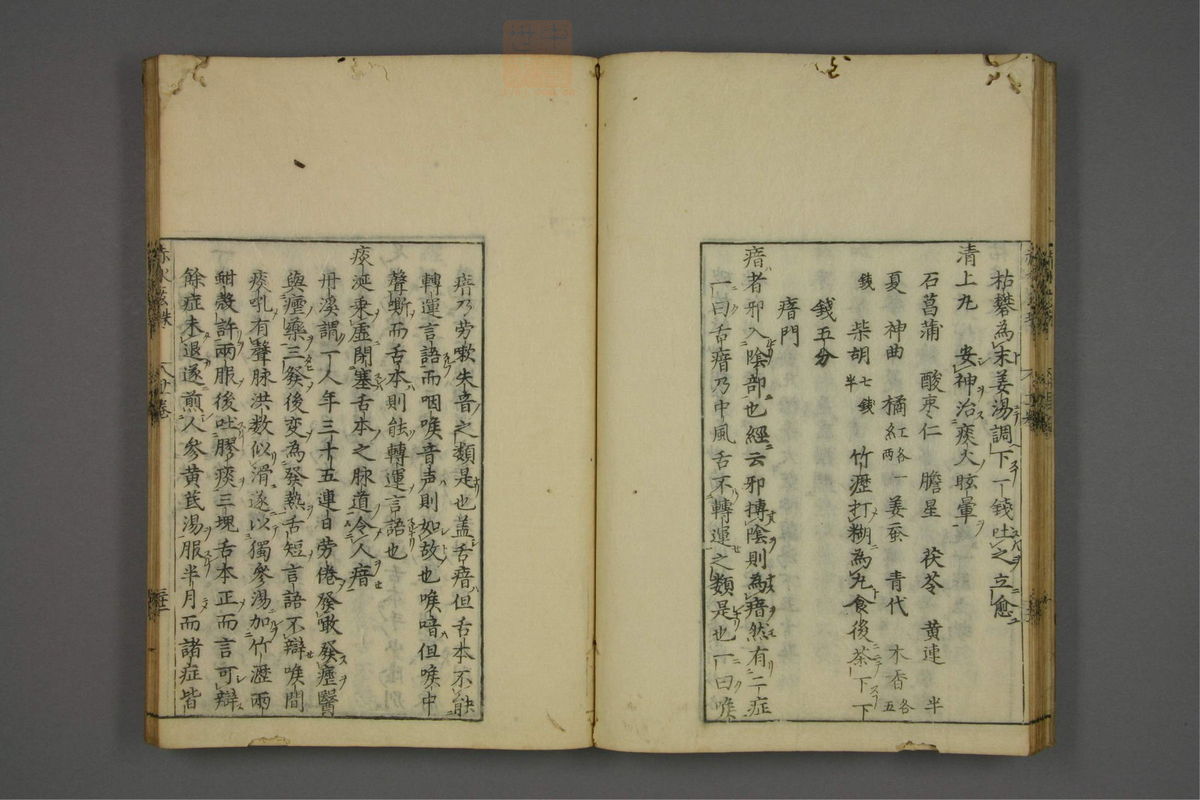 枯礬為末姜湯調下一錢吐之立愈
清上丸 安神治痰火眩暈
石菖蒲 酸棗仁 膽星 茯苓 黄連 半
夏 神曲 橘紅各一両 姜蚕 青代 木香各五
錢 柴胡七錢半 竹瀝打糊為丸食後茶下下
錢五分
瘖門
瘖者邪入陰部也經云邪搏陰則為瘖然有二症
一曰舌瘖乃中風舌不轉運之類是也一曰喉
瘖乃勞嗽失音之類是也盖舌瘖但舌本不能
轉運言語而咽喉音声則如故也喉喑但喉中
聲嘶而舌本則能轉運言語也
痰涎乗虚閉塞舌本之脉道令人瘖
丹溪謂一人年三十五連日勞倦發嗽發瘧醫
與瘧藥三發後変為發熱舌短言語不辯喉間
痰吼有聲脉洪数似滑遂以獨參湯加竹瀝兩
蚶殻許兩服後吐膠痰三塊舌本正而言可辯
餘症未退遂煎人參黄芪湯服半月而諸症皆
赤水玄珠